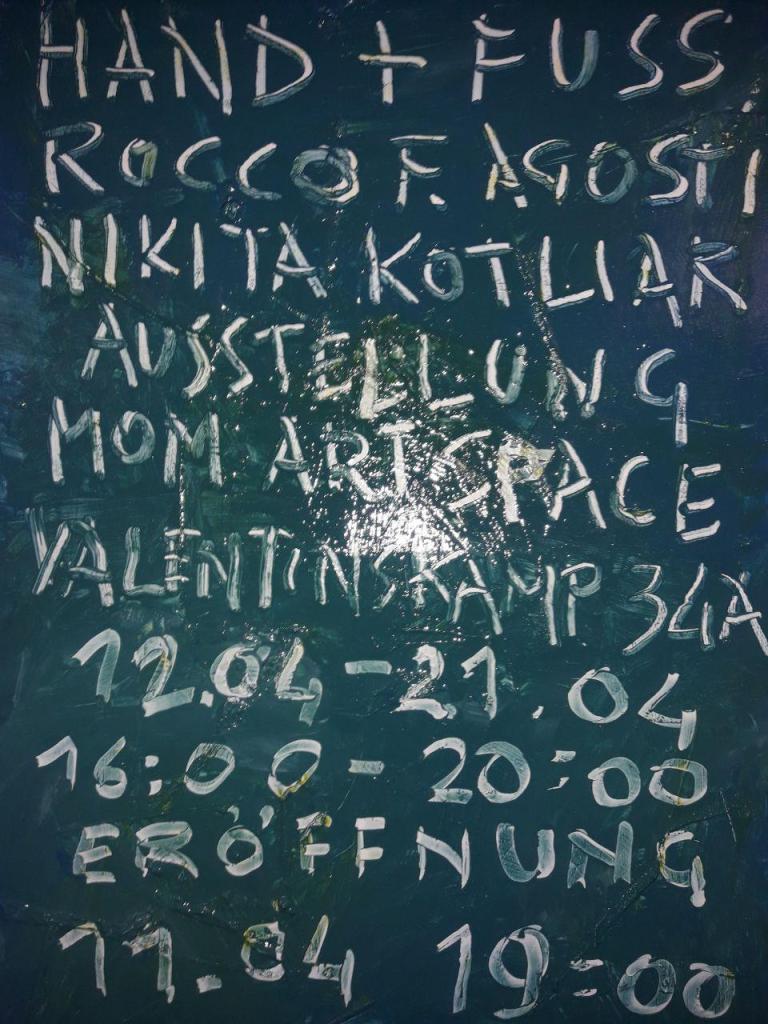 HAND + FUSS,
ROCCO F. AGOSTI
NIKITA KOTLIAR
AUSSTELLUNG
MOM ARTSPACE
VALENTINSKAMP 34A
12.04 - 21.04
16:00 - 20:00
ERÖFFNUNG
11.04 19:00